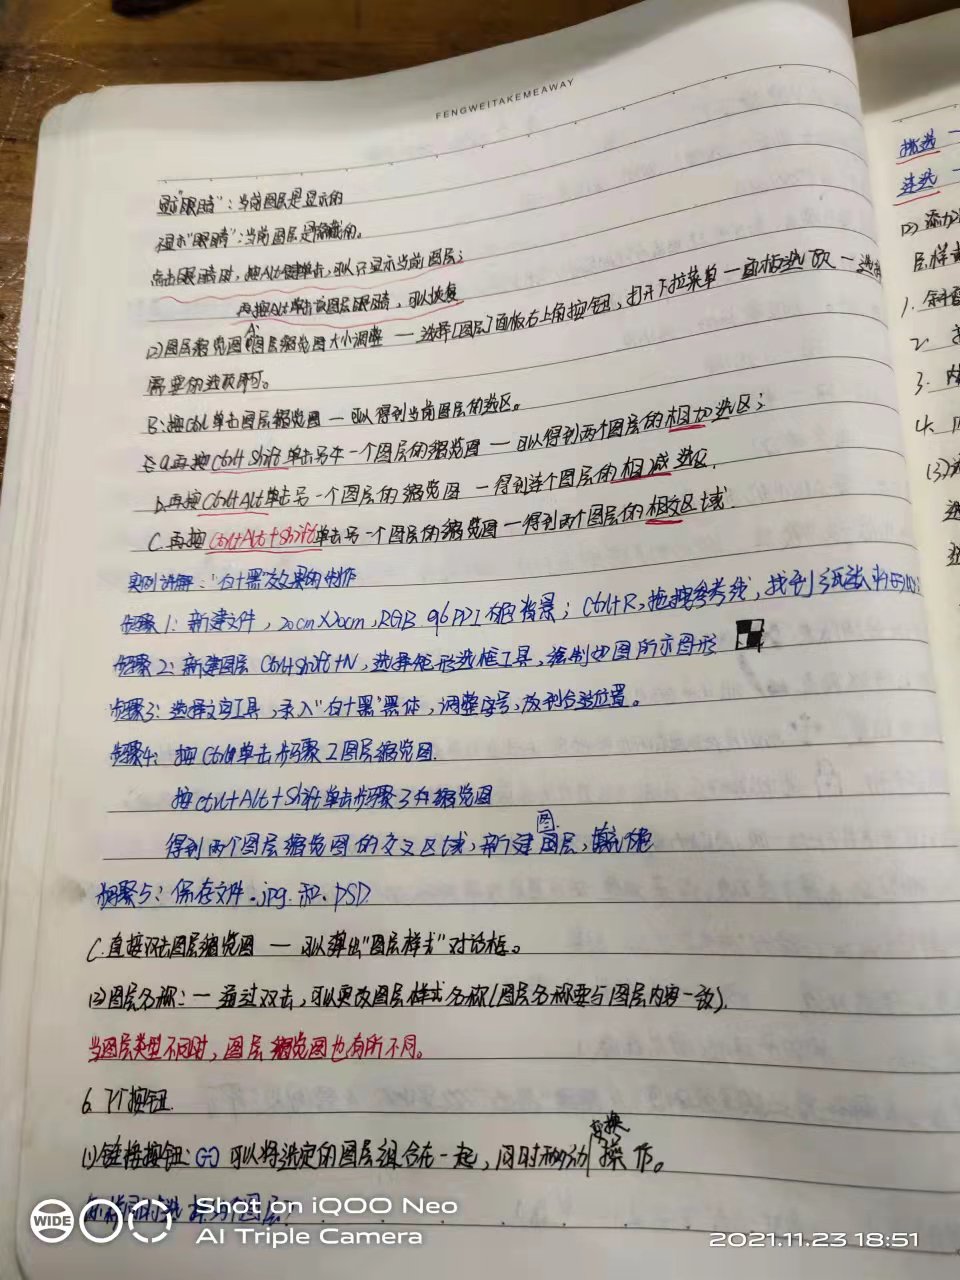 FENGWEITAKEMEAWAY
显示"眼睛"：当前图层是显示的
"眼睛"：当前图层是隐藏的。
点击眼睛时，按Alt键单击，可以只显示当前图层；
再按Alt单击该图层眼睛，可以恢复
(2)图层缩览图 A.图层缩览图大小调整 — 选择[图层]面板右上角按钮，打开下拉菜单 — 面板选项 — 选择
需要的选项即可。
B:按Ctrl单击图层缩览图 — 可以得到当前图层的选区。
a.再按Ctrl+Shift单击另外一个图层的缩览图 — 可以得到两个图层的相加选区；
b.再按Ctrl+Alt单击另一个图层的缩览图 — 得到这个图层的相减选区.
C.再按Ctrl+Alt+Shift单击另一个图层的缩览图 — 得到两个图层的相交区域.
实例讲解："白+黑"效果的制作
步骤1：新建文件，20cm×20cm，RGB 96PPI 白色背景；Ctrl+R，拖拽参考线，找到纸张
步骤2：新建图层 Ctrl+Shift+N，选择矩形选框工具，绘制如图所示图形
步骤3：选择文字工具，录入"白+黑"黑体，调整字号，放到合适位置。
步骤4：按Ctrl单击步骤2图层缩览图.
按Ctrl+Alt+Shift单击步骤3的缩览图
得到两个图层缩览图的交叉区域，新建图层，填白色
步骤5：保存文件.jpg.和.PSD
C.直接双击图层缩览图 — 可以弹出"图层样式"对话框。
(3)图层名称：— 通过双击，可以更改图层样式名称(图层名称要与图层内容一致).
当图层类型不同时，图层缩览图也有所不同。
6.7个按钮.
(1)链接按钮: 可以将选定的图层组合在一起，同时移动/变换操作。
挑选 —
连选 —
(2)添加
层样式
1.斜面
2.
3.内
4.
(3)
选
WIDE
Shot on iQOO Neo
AI Triple Camera
2021.11.23 18:51